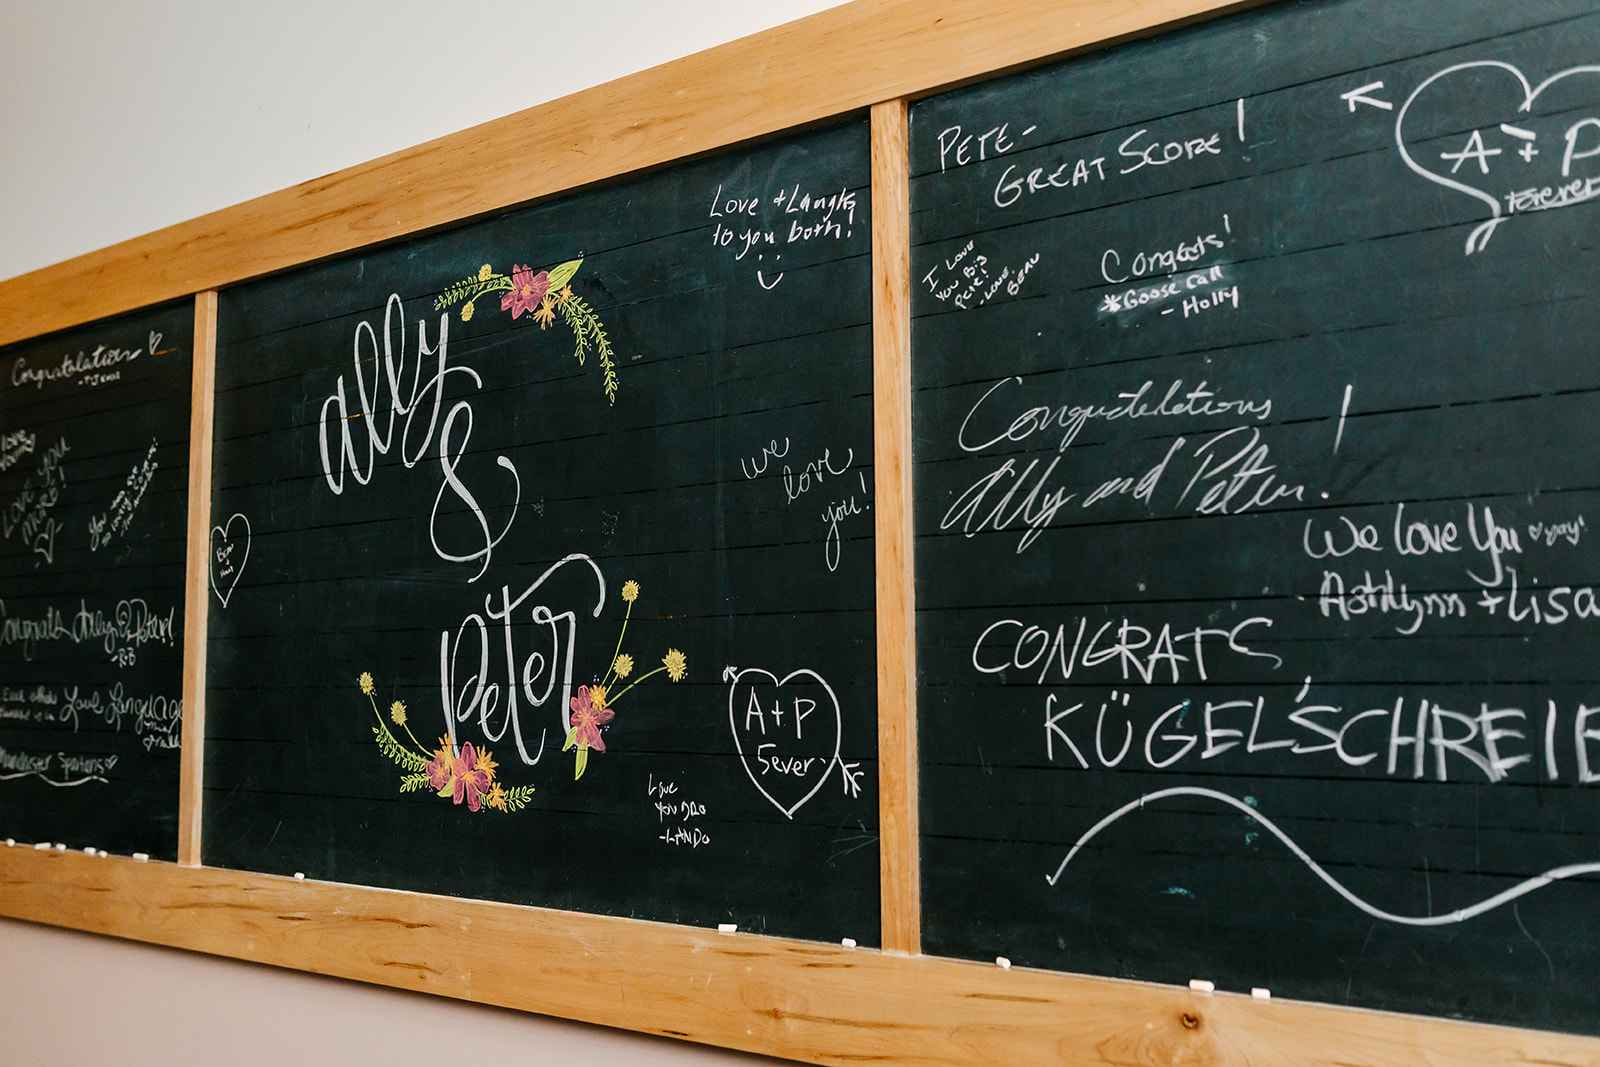 Congratulations
Love
you
more!
You
Congrats Ally & Peter!
- R+B
Love Language
Spartans
ally
&
Peter
Love + Laughs
to you both!
we
love
you!
A + P
5ever
Love
you bro
- LANDO
PETE -
GREAT SCORE!
I Love
You Big
Pete!
- Love,
BEAU
Congrats!
*Goose call
- Holly
Congratulations
Ally and Peter!
A + P
forever
We love You yay!
Ashlynn + Lisa
CONGRATS,
KÜGEL'SCHREIE